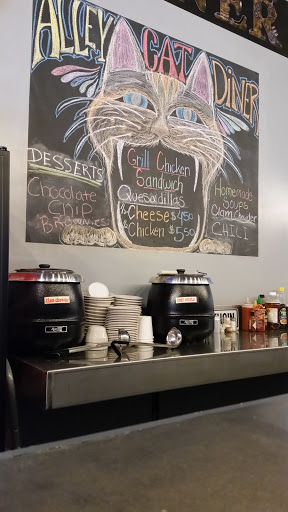 ALLEY CAT DINER
DESSERTS
Chocolate
Chip
Brownies
Grill Chicken
Sandwich
Quesadillas
Cheese $4.50
Chicken $5.50
Homemade
Soups
Clam Chowder
CHILI
clam chowder